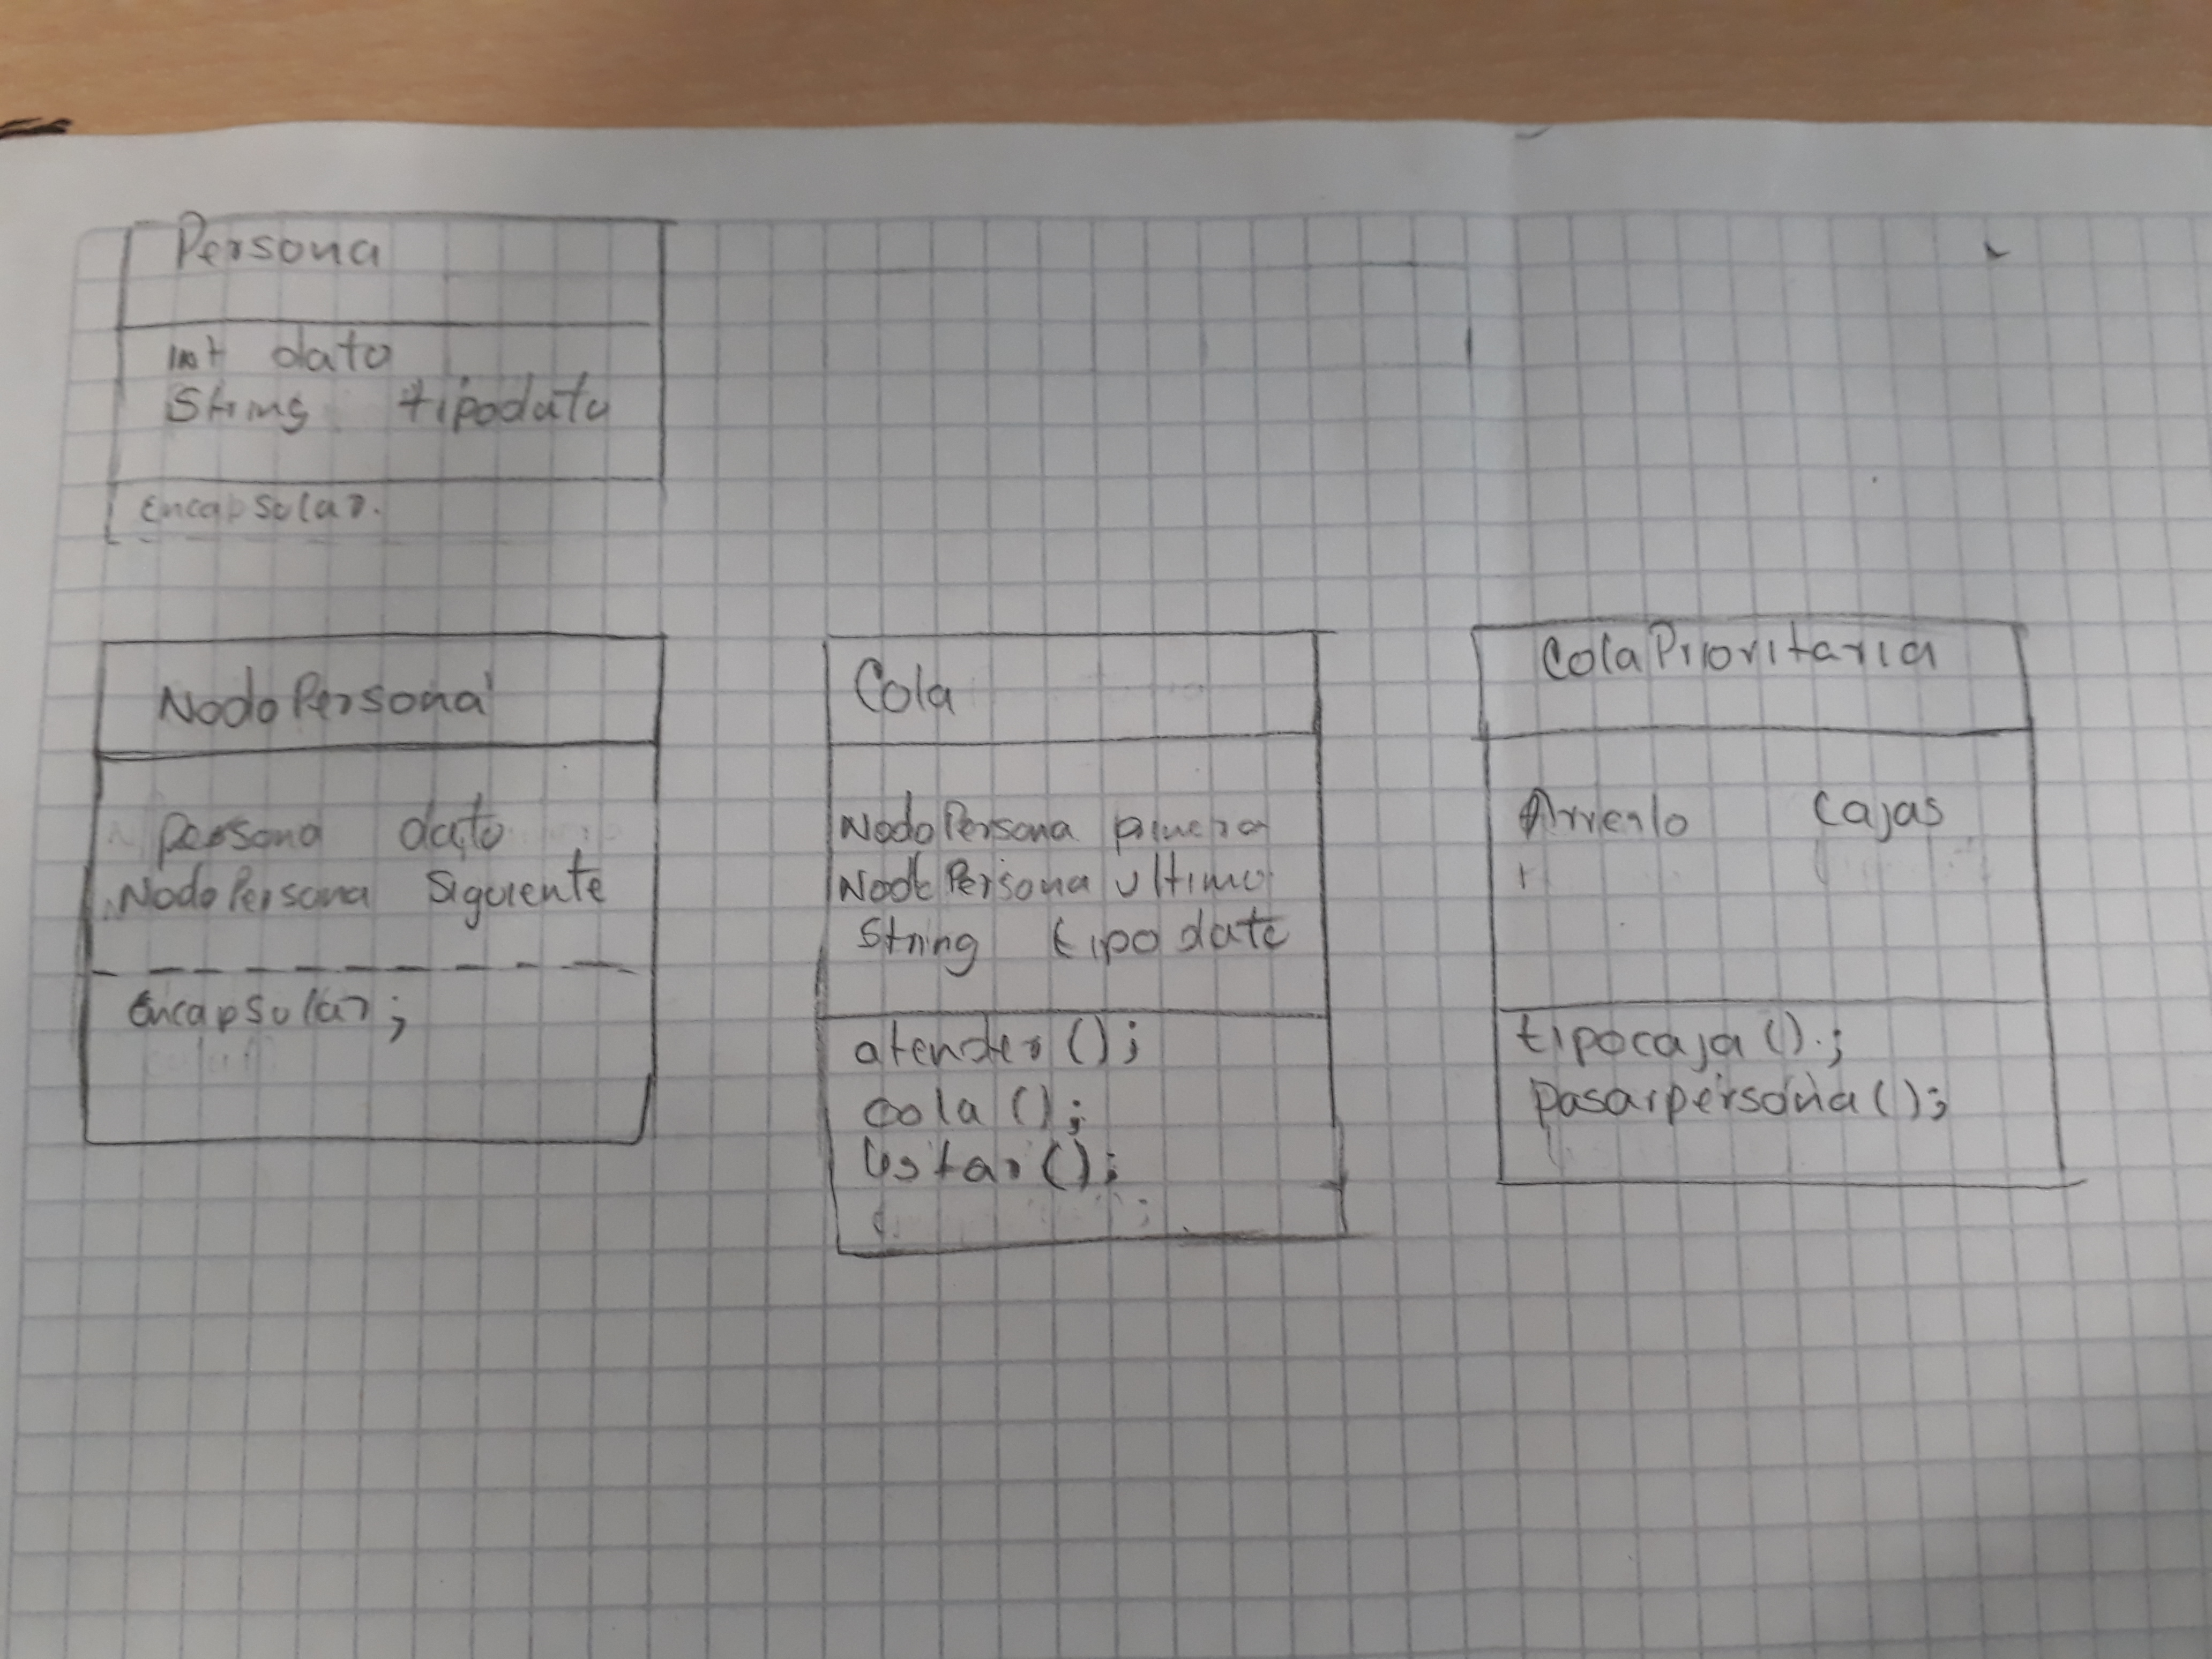 Persona
int dato
String tipodato
Encapsular.
NodoPersona
Persona dato
NodoPersona Siguiente
Encapsular;
Cola
NodoPersona
NodoPersona ultimo
String tipo dato
atender();
cola();
listar();
ColaPrioritaria
Arreglo Cajas
tipocaja();
pasarpersona();